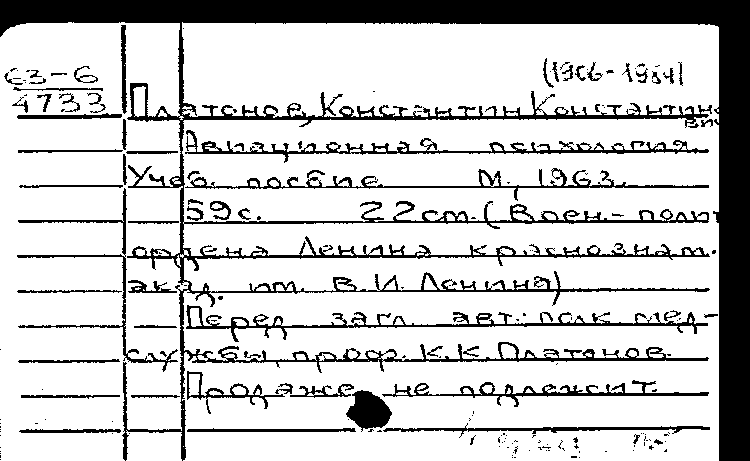 63-6
4733
(1906-1984)
Платонов, Константин Константино
вич
Авиационная психология.
Учеб. пособие М., 1963.
59с. 22см. (Воен.-полит
ордена Ленина краснознам.
акад. им. В.И. Ленина)
Перед загл. авт.: полк мед-
службы, проф. К.К. Платонов.
Продаже не подлежит.